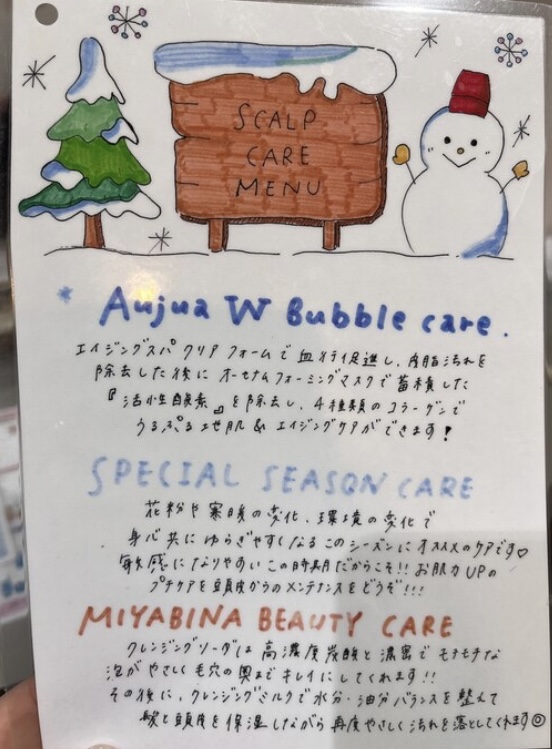 SCALP
CARE
MENU
Aujua W Bubble care.
エイジングスパ クリア フォームで 血行促進し、皮脂汚れを
除去した後に オーセナム フォーミングマスクで 蓄積した
『活性酸素』を除去し、4種類の コラーゲンで
うるぷる地肌 & エイジングケアができます!
SPECIAL SEASON CARE
花粉や 寒暖の変化、環境の変化で
身心共に ゆらぎやすくなる このシーズンに オススメのケアです♡
敏感になりやすい この時期だからこそ!! お肌力UPの
プチケアを 頭皮からのメンテナンスをどうぞ!!!
MIYABINA BEAUTY CARE
クレンジングソーダは 高濃度炭酸と 濃密で モチモチな
泡がやさしく 毛穴の奥まで キレイにしてくれます!!
その後に、クレンジングミルクで 水分・油分バランスを 整えて
髪と頭皮を 保湿しながら 再度やさしく 汚れを落としてくれます◎